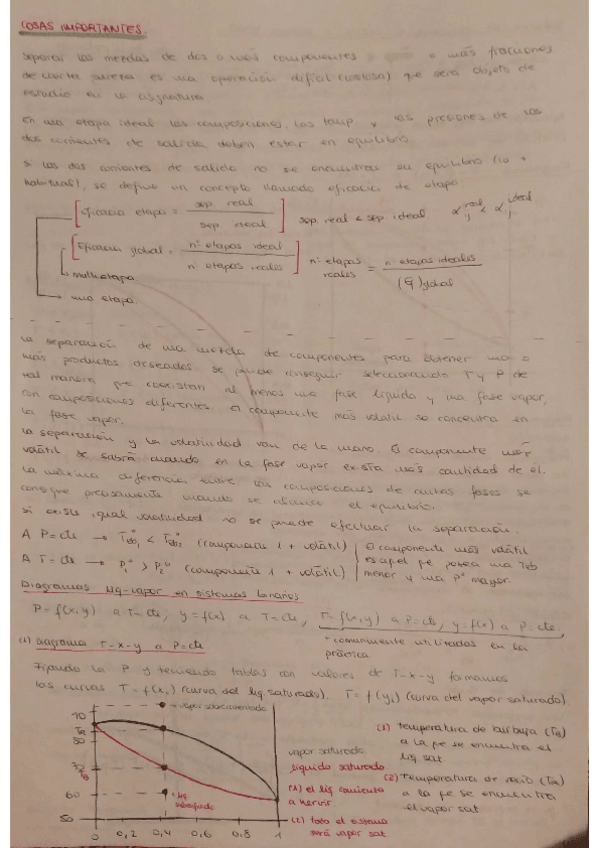 COSAS IMPORTANTES.
Separar las mezclas de dos o más componentes o más fracciones
de cierta pureza es una operación difícil (costosa) que será objeto de
estudio en la asignatura
En una etapa ideal las composiciones, las temp y las presiones de las
dos corrientes de salida deben estar en equilibrio.
Si las dos corrientes de salida no se encuentran en equilibrio (lo +
habitual), se define un concepto llamado eficacia de etapa
Eficacia etapa = sep. real / sep. ideal sep. real < sep ideal α ij real < α ij ideal
Eficacia global = nº etapas ideal / nº etapas reales nº etapas reales = nº etapas ideales / (E) global
multietapa
una etapa.
La separación de una mezcla de componentes para obtener uno o
más productos deseados se puede conseguir seleccionando T y P de
tal manera que coexistan al menos una fase líquida y una fase vapor,
con composiciones diferentes. El componente más volátil se concentra en
la fase vapor.
La separación y la volatilidad van de la mano. El componente más
volátil se sabrá cuando en la fase vapor exista más cantidad de él.
La máxima diferencia entre las composiciones de ambas fases se
consigue precisamente cuando se alcance el equilibrio.
Si existe igual volatilidad no se puede efectuar la separación.
A P=cte → Teb1º < Teb2º (componente 1 + volátil) El componente más volátil
A T=cte → P1º > P2º (componente 1 + volátil) es aquel que posea una Teb
menor y una Pº mayor.
Diagramas líq-vapor en sistemas binarios
P=f(x,y) a T=cte, y=f(x) a T=cte, T=f(x,y) a P=cte, y=f(x) a P=cte,
* comúnmente utilizadas en la
práctica
(1) Diagrama T-x-y a P=cte
Fijando la P y teniendo tablas con valores de T-x-y formamos
las curvas T=f(xi) (curva del líq. saturado). T=f(yi) (curva del vapor saturado).
vapor sobrecalentado
vapor saturado
líquido saturado
líq subenfriado
(1) el líq comienza
a hervir
(2) todo el sistema
será vapor sat
(1) temperatura de burbuja (TB)
a la que se encuentra el
líq sat
(2) temperatura de rocío (TR)
a la que se encuentra
el vapor sat
60
50
0 0,2 0,4 0,6 0,8 1